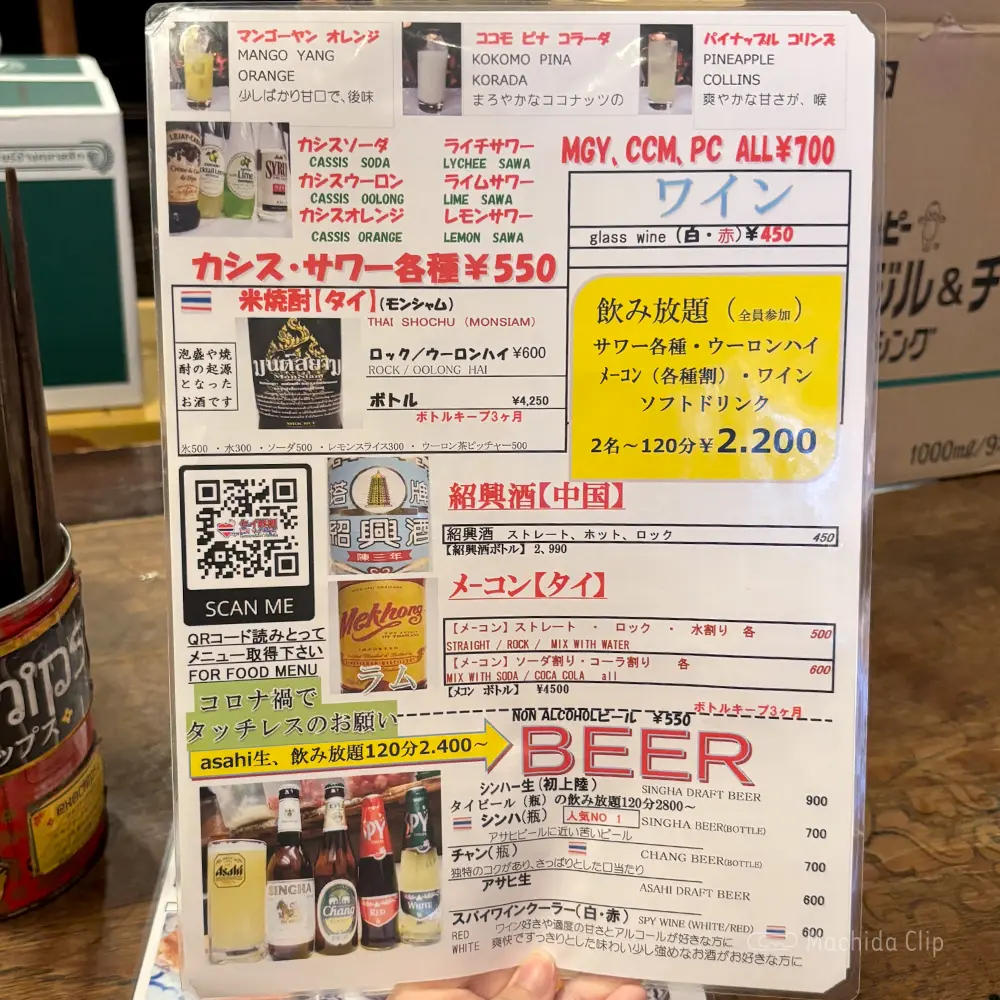 マンゴーヤン オレンジ
MANGO YANG
ORANGE
少しばかり甘口で、後味
ココモ ピナ コラーダ
KOKOMO PINA
KORADA
まろやかなココナッツの
パイナップル コリンズ
PINEAPPLE
COLLINS
爽やかな甘さが、喉
カシスソーダ
CASSIS SODA
カシスウーロン
CASSIS OOLONG
カシスオレンジ
CASSIS ORANGE
ライチサワー
LYCHEE SAWA
ライムサワー
LIME SAWA
レモンサワー
LEMON SAWA
カシス・サワー各種¥550
MGY、CCM、PC ALL¥700
ワイン
glass wine (白・赤)¥450
飲み放題（全員参加）
サワー各種・ウーロンハイ
メーコン（各種割）・ワイン
ソフトドリンク
2名～120分¥2.200
米焼酎【タイ】(モンシャム)
THAI SHOCHU (MONSIAM)
泡盛や焼
酎の起源
となった
お酒です
มนต์สยาม
MONSIAM
ロック／ウーロンハイ ¥600
ROCK / OOLONG HAI
ボトル ¥4,250
ボトルキープ3ヶ月
氷500 ・水300 ・ソーダ500 ・レモンスライス300 ・ウーロン茶ピッチャー500
SCAN ME
QRコード読みとって
メニュー取得下さい
FOR FOOD MENU
塔牌
紹興酒
陳三年
紹興酒【中国】
紹興酒 ストレート、ホット、ロック 450
【紹興酒ボトル】 2,990
Mekhong
ラム
メーコン【タイ】
【メーコン】ストレート ・ ロック ・ 水割り 各 500
STRAIGHT / ROCK / MIX WITH WATER
【メーコン】ソーダ割り・コーラ割り 各 600
MIX WITH SODA / COCA COLA all
【メコン ボトル】 ¥4500
ボトルキープ3ヶ月
コロナ禍で
タッチレスのお願い
asahi生、飲み放題120分2.400～
NON ALCOHOLビール ¥550
BEER
シンハー生(初上陸) SINGHA DRAFT BEER 900
タイビール（瓶）の飲み放題120分2800～
シンハ(瓶) 人気NO 1 SINGHA BEER(BOTTLE) 700
アサヒビールに近い苦いビール
チャン(瓶) CHANG BEER(BOTTLE) 700
独特のコクがあり、さっぱりとした口当たり
アサヒ生 ASAHI DRAFT BEER 600
スパイワインクーラー(白・赤) SPY WINE (WHITE/RED) 600
RED ワイン好きや適度の甘さとアルコールが好きな方に
WHITE 爽快ですっきりとした味わい少し強めなお酒がお好きな方に
Asahi
SINGHA
Chang
SPY
RED
SPY
WHITE
ジル＆チ
シング
1000ml/9
Machida Clip